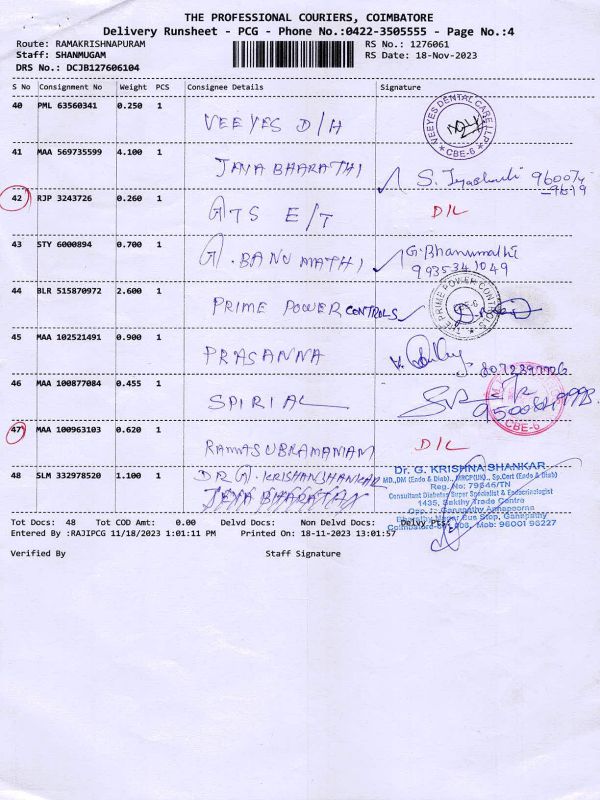 THE PROFESSIONAL COURIERS, COIMBATORE
Delivery Runsheet - PCG - Phone No.:0422-3505555 - Page No.:4
Route: RAMAKRISHNAPURAM RS No.: 1276061
Staff: SHANMUGAM RS Date: 18-Nov-2023
DRS No.: DCJB127606104
S No Consignment No Weight PCS Consignee Details Signature
40 PML 63560341 0.250 1 VEEYES D/H
VEEYES DENTAL CARE LLP * CBE-6 *
41 MAA 569735599 4.100 1 JAYA BHARATHI S. 960074
9619
42 RJP 3243726 0.260 1 GTS E/T D/L
43 STY 6000894 0.700 1 G. BANUMATHI G. Bhanumathi
9935341049
44 BLR 515870972 2.600 1 PRIME POWER CONTROLS
THE PRIME POWER CONTROLS CBE-6
45 MAA 102521491 0.900 1 PRASANNA
46 MAA 100877084 0.455 1 SPIRIAL
CBE-6
47 MAA 100963103 0.620 1 RAMASUBRAMANIAM D/L
48 SLM 332978520 1.100 1 DR G. KRISHANSHANKAR
JEYA BHARATHY
Dr. G. KRISHNA SHANKAR
MD.,DM (Endo & Diab)., MRCP(UK)., Sp.Cert (Endo & Diab)
Reg. No: 79646/TN
Consultant Diabetes Super Specialist & Endocrinologist
1435, Sakthy Trade Centre
Opp. Ganapathy Annapoorna
Bus Stop, Ganapathy
Mob: 96001 96227
Tot Docs: 48 Tot COD Amt: 0.00 Delvd Docs: Non Delvd Docs: Delvy Pts:
Entered By :RAJIPCG 11/18/2023 1:01:11 PM Printed On: 18-11-2023 13:01:57
Verified By Staff Signature